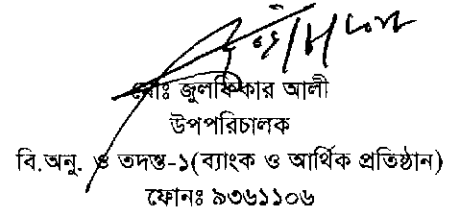 মোঃ জুলফিকার আলী
উপপরিচালক
বি.অনু. ও তদন্ত-১(ব্যাংক ও আর্থিক প্রতিষ্ঠান)
ফোনঃ ৯৩৬১১০৬